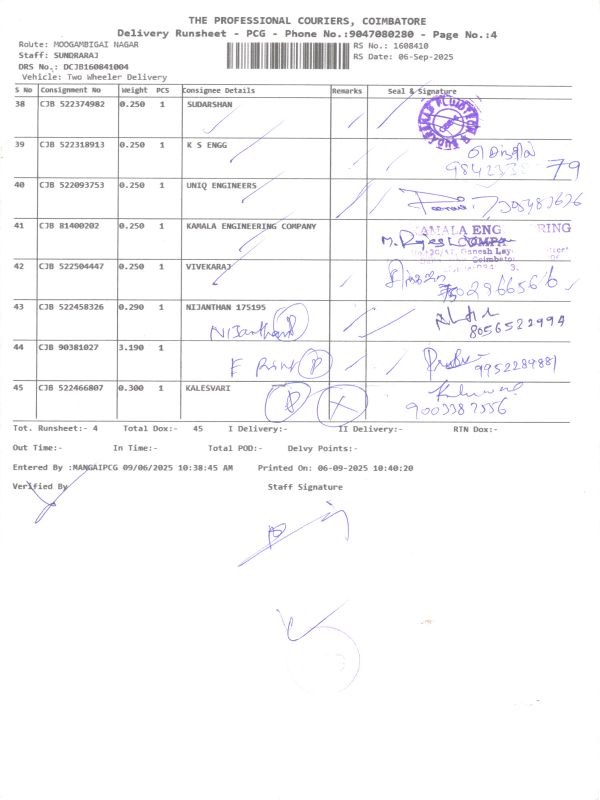 THE PROFESSIONAL COURIERS, COIMBATORE
Delivery Runsheet - PCG - Phone No.:9047080280 - Page No.:4
Route: MOOGAMBIGAI NAGAR
RS No.: 1608410
Staff: SUNDRARAJ
RS Date: 06-Sep-2025
DRS No.: DCJB160841004
Vehicle: Two Wheeler Delivery
S No Consignment No Weight PCS Consignee Details Remarks Seal & Signature
38 CJB 522374982 0.250 1 SUDARSHAN
39 CJB 522318913 0.250 1 K S ENGG
79
40 CJB 522093753 0.250 1 UNIQ ENGINEERS
41 CJB 81400202 0.250 1 KAMALA ENGINEERING COMPANY
AMALA ENG RING
42 CJB 522504447 0.250 1 VIVEKARAJ
43 CJB 522458326 0.290 1 NIJANTHAN 175195
Nijanthan P
8056522994
44 CJB 90381027 3.190 1
F Print P
9952289881
45 CJB 522466807 0.300 1 KALESVARI
P X
9003387556
Tot. Runsheet:- 4 Total Dox:- 45 I Delivery:- II Delivery:- RTN Dox:-
Out Time:- In Time:- Total POD:- Delvy Points:-
Entered By :MANGAIPCG 09/06/2025 10:38:45 AM Printed On: 06-09-2025 10:40:20
Verified By Staff Signature